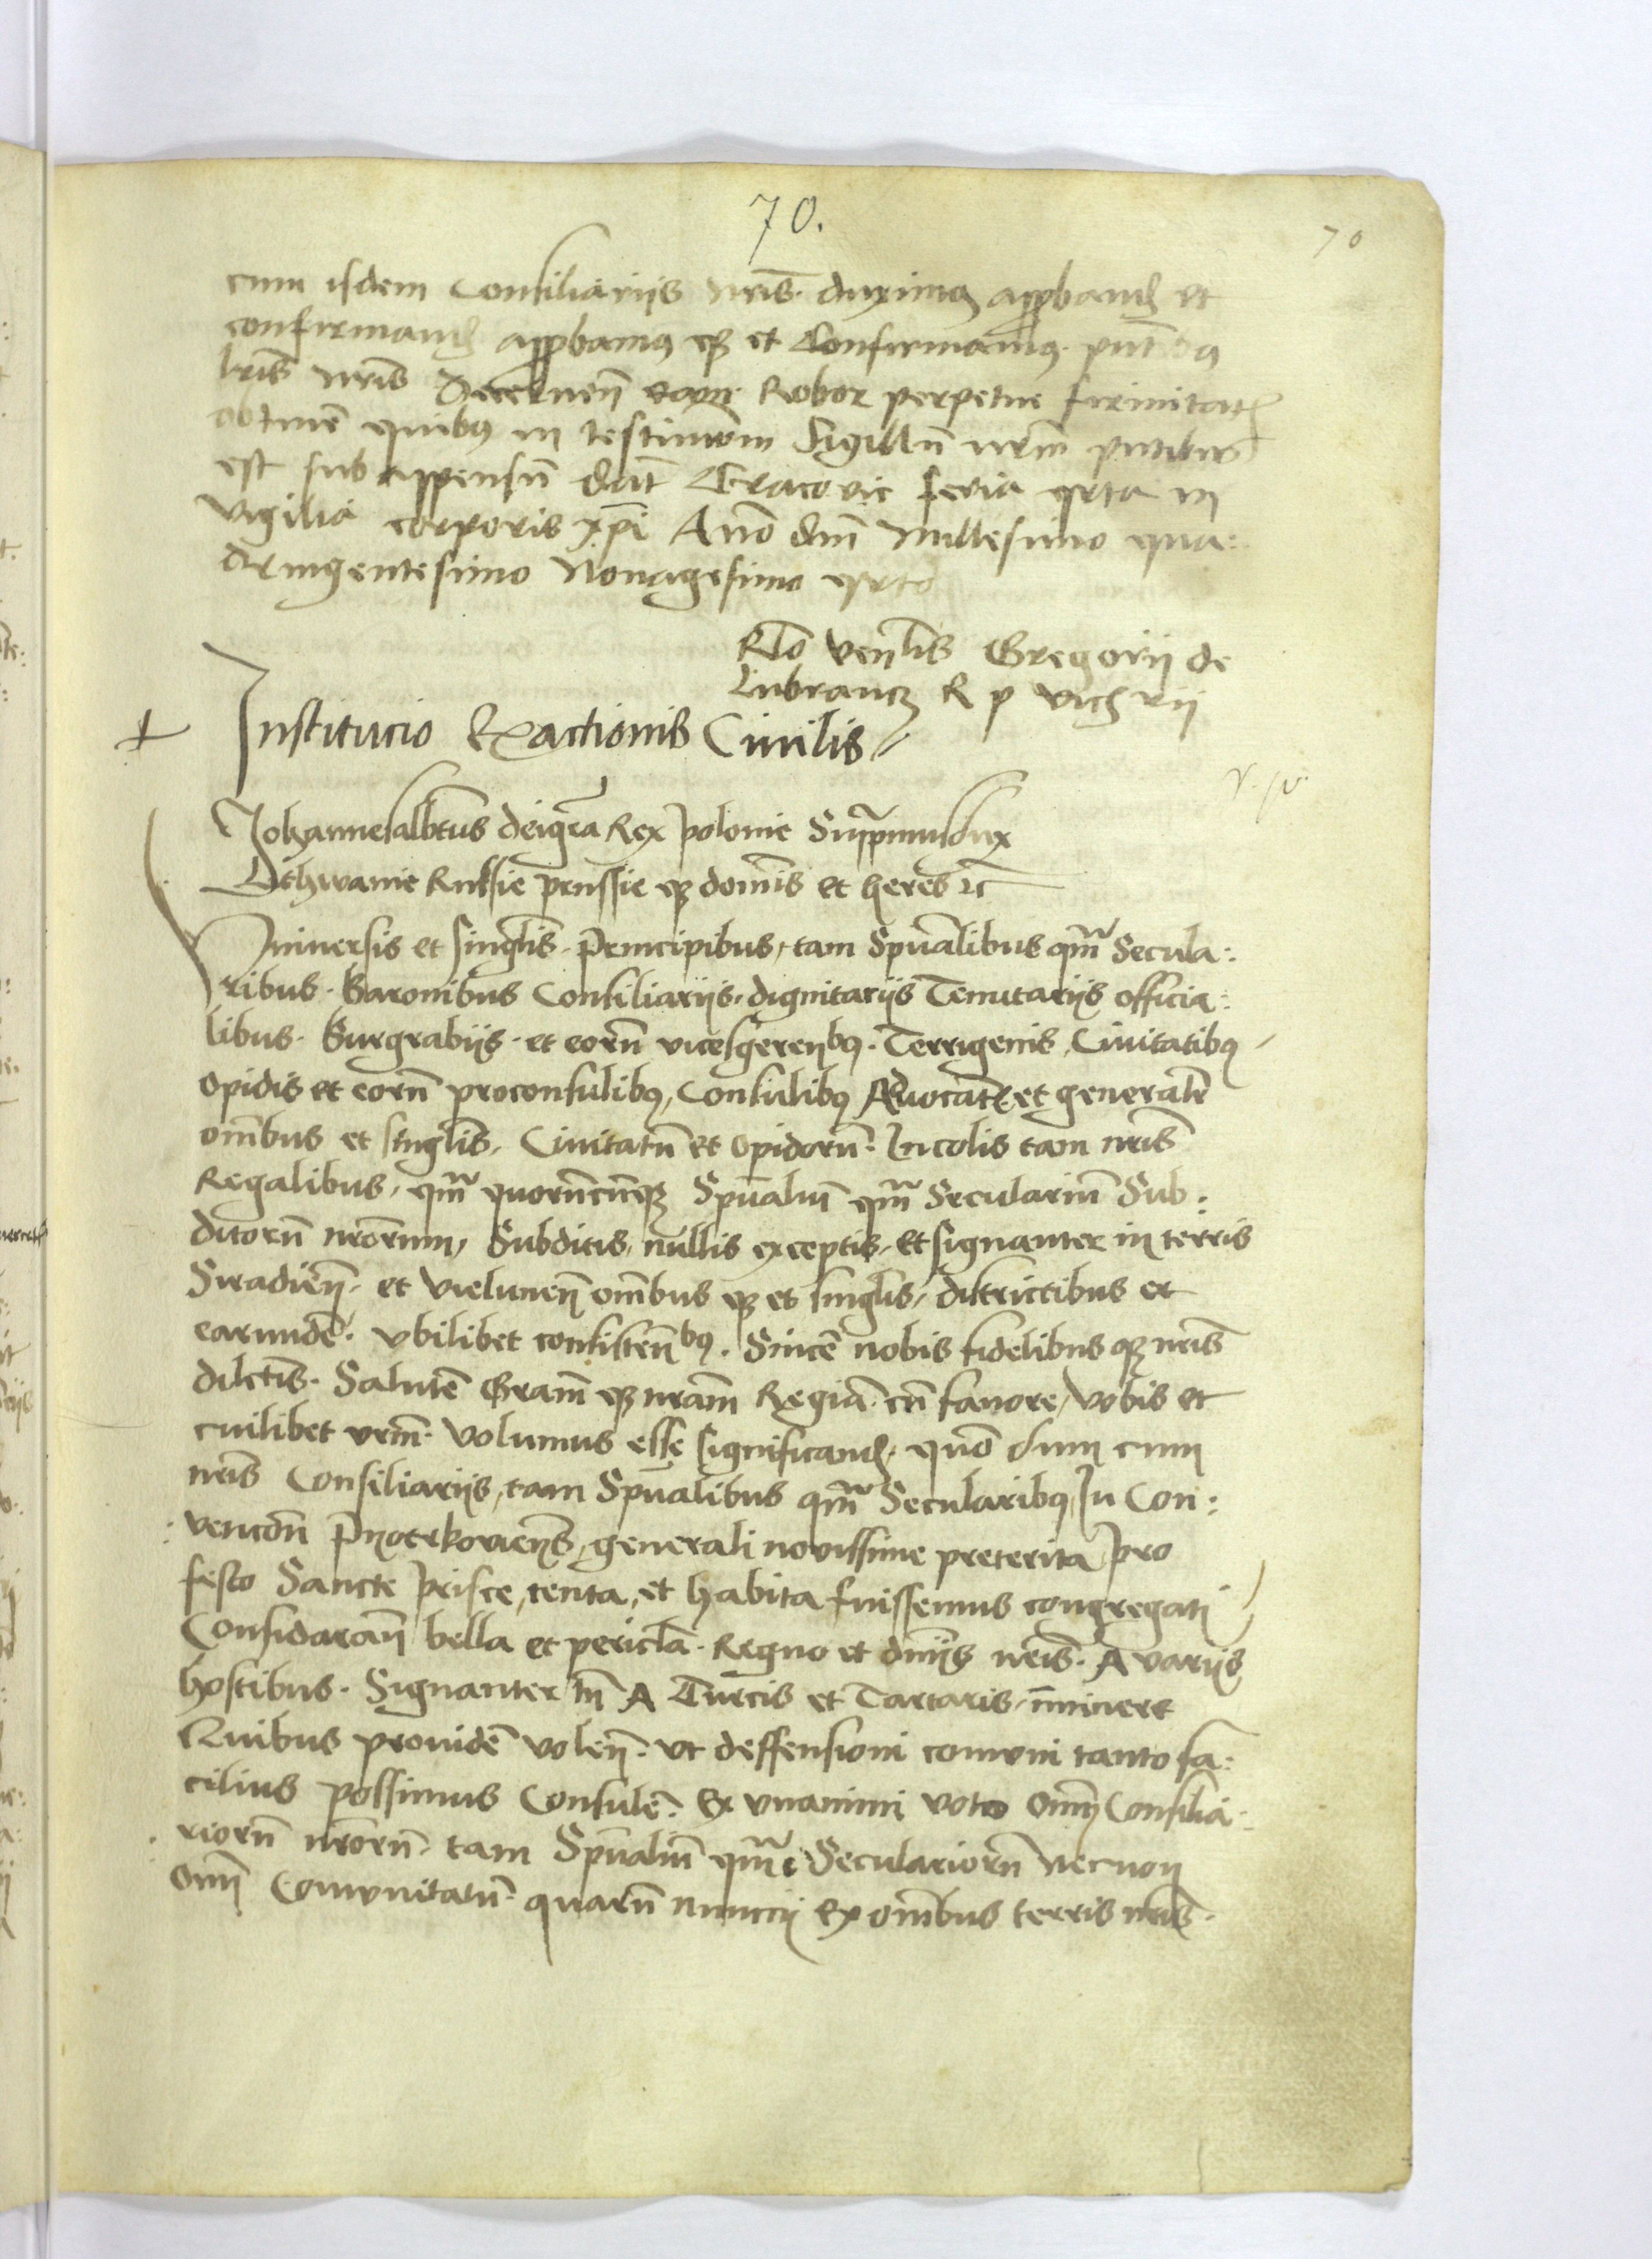 70.
70
cum isdem Consiliarijs nr̃is duximꝰ apꝓband̃ et
confirmand̃ apꝓbamꝰ qꝫ et Confirmamus pñtibꝰ
lr̃is nr̃is Decernen̄ eaꝝ Robor perpetue firmitatꝭ
obtinē quibꝰ in testimoñm Sigillū nr̃m pñtibus
est subappensū dat̄ Cracovie feria qrta in
vigilia corporis xp̃i Año dñi Millesimo qua:
dringentesimo Nonagesimo qrto
Rlō ven̄lis Gregorij de
Lubrancz R p vich rij
Institucio Exactionis Ciuilis
Johannesalbtũs deigr̃a Rex polonie Supp̃musdux
Lithwanie Russie prussie qꝫ dom̃is et heres ꝛc̃
Vniuersis et singl̃is Principibus, tam Spũalibus qm̃ Secula:
ribus. Baronibus Consiliarijs, dignitarijs Tenutarijs officia:
libus. Burgrabijs. et eorũ vicesgerenbꝰ. Terrigenis, Ciuitatibꝰ
opidis et eorũ proconsulibꝰ, Consulibꝰ Aduocatꝭ et generalr̃
om̃bus et singl̃is, Ciuitatũ et opidorũ. Incolis tam nr̃is
Regalibus, qm̃ quorũcũqꝫ Spũaliũ qm̃ Seculariũ Sub:
ditorũ nr̃orum, Subditis, nullis exceptis, et signanter in terris
Siradien̄. et vielunen̄ om̃bus qꝫ et singl̃is, districtibus et
earundē. vbilibet consisten̄bꝰ. Sincē nobis fidelibus qꝫ nr̃is
dilctĩs. Salutē Gram̃ qꝫ nr̃am Regiã cũ fauore, Vobis et
cuilibet vrm̃. volumus esse significand̃. quō dum cum
nr̃is Consiliarijs, tam Spũalibus qm̃ Secularibꝰ, In Con:
venc̃oñ Pyotrkovieñs, generali novissime preterita pro
festo Sancte Prisce, tenta, et habita fuissemus congregati
Considaran̄ bella et pericl̃a. Regno et dñijs nr̃is. A varijs
hostibus. Signanter tñ A Turcis et Tartaris, iminere
Quibus prouidē volen̄. vt deffensioni comvni tanto fa:
cilius possimus Consulē. Ex vnanimi voto om̃ Consilia:
riorũ nr̃orũ. tam Spũaliũ qm̃ Seculariorũ necnon
om̃ Comvnitatũ. quarũ nunccij Ex om̃bus terris nr̃is.